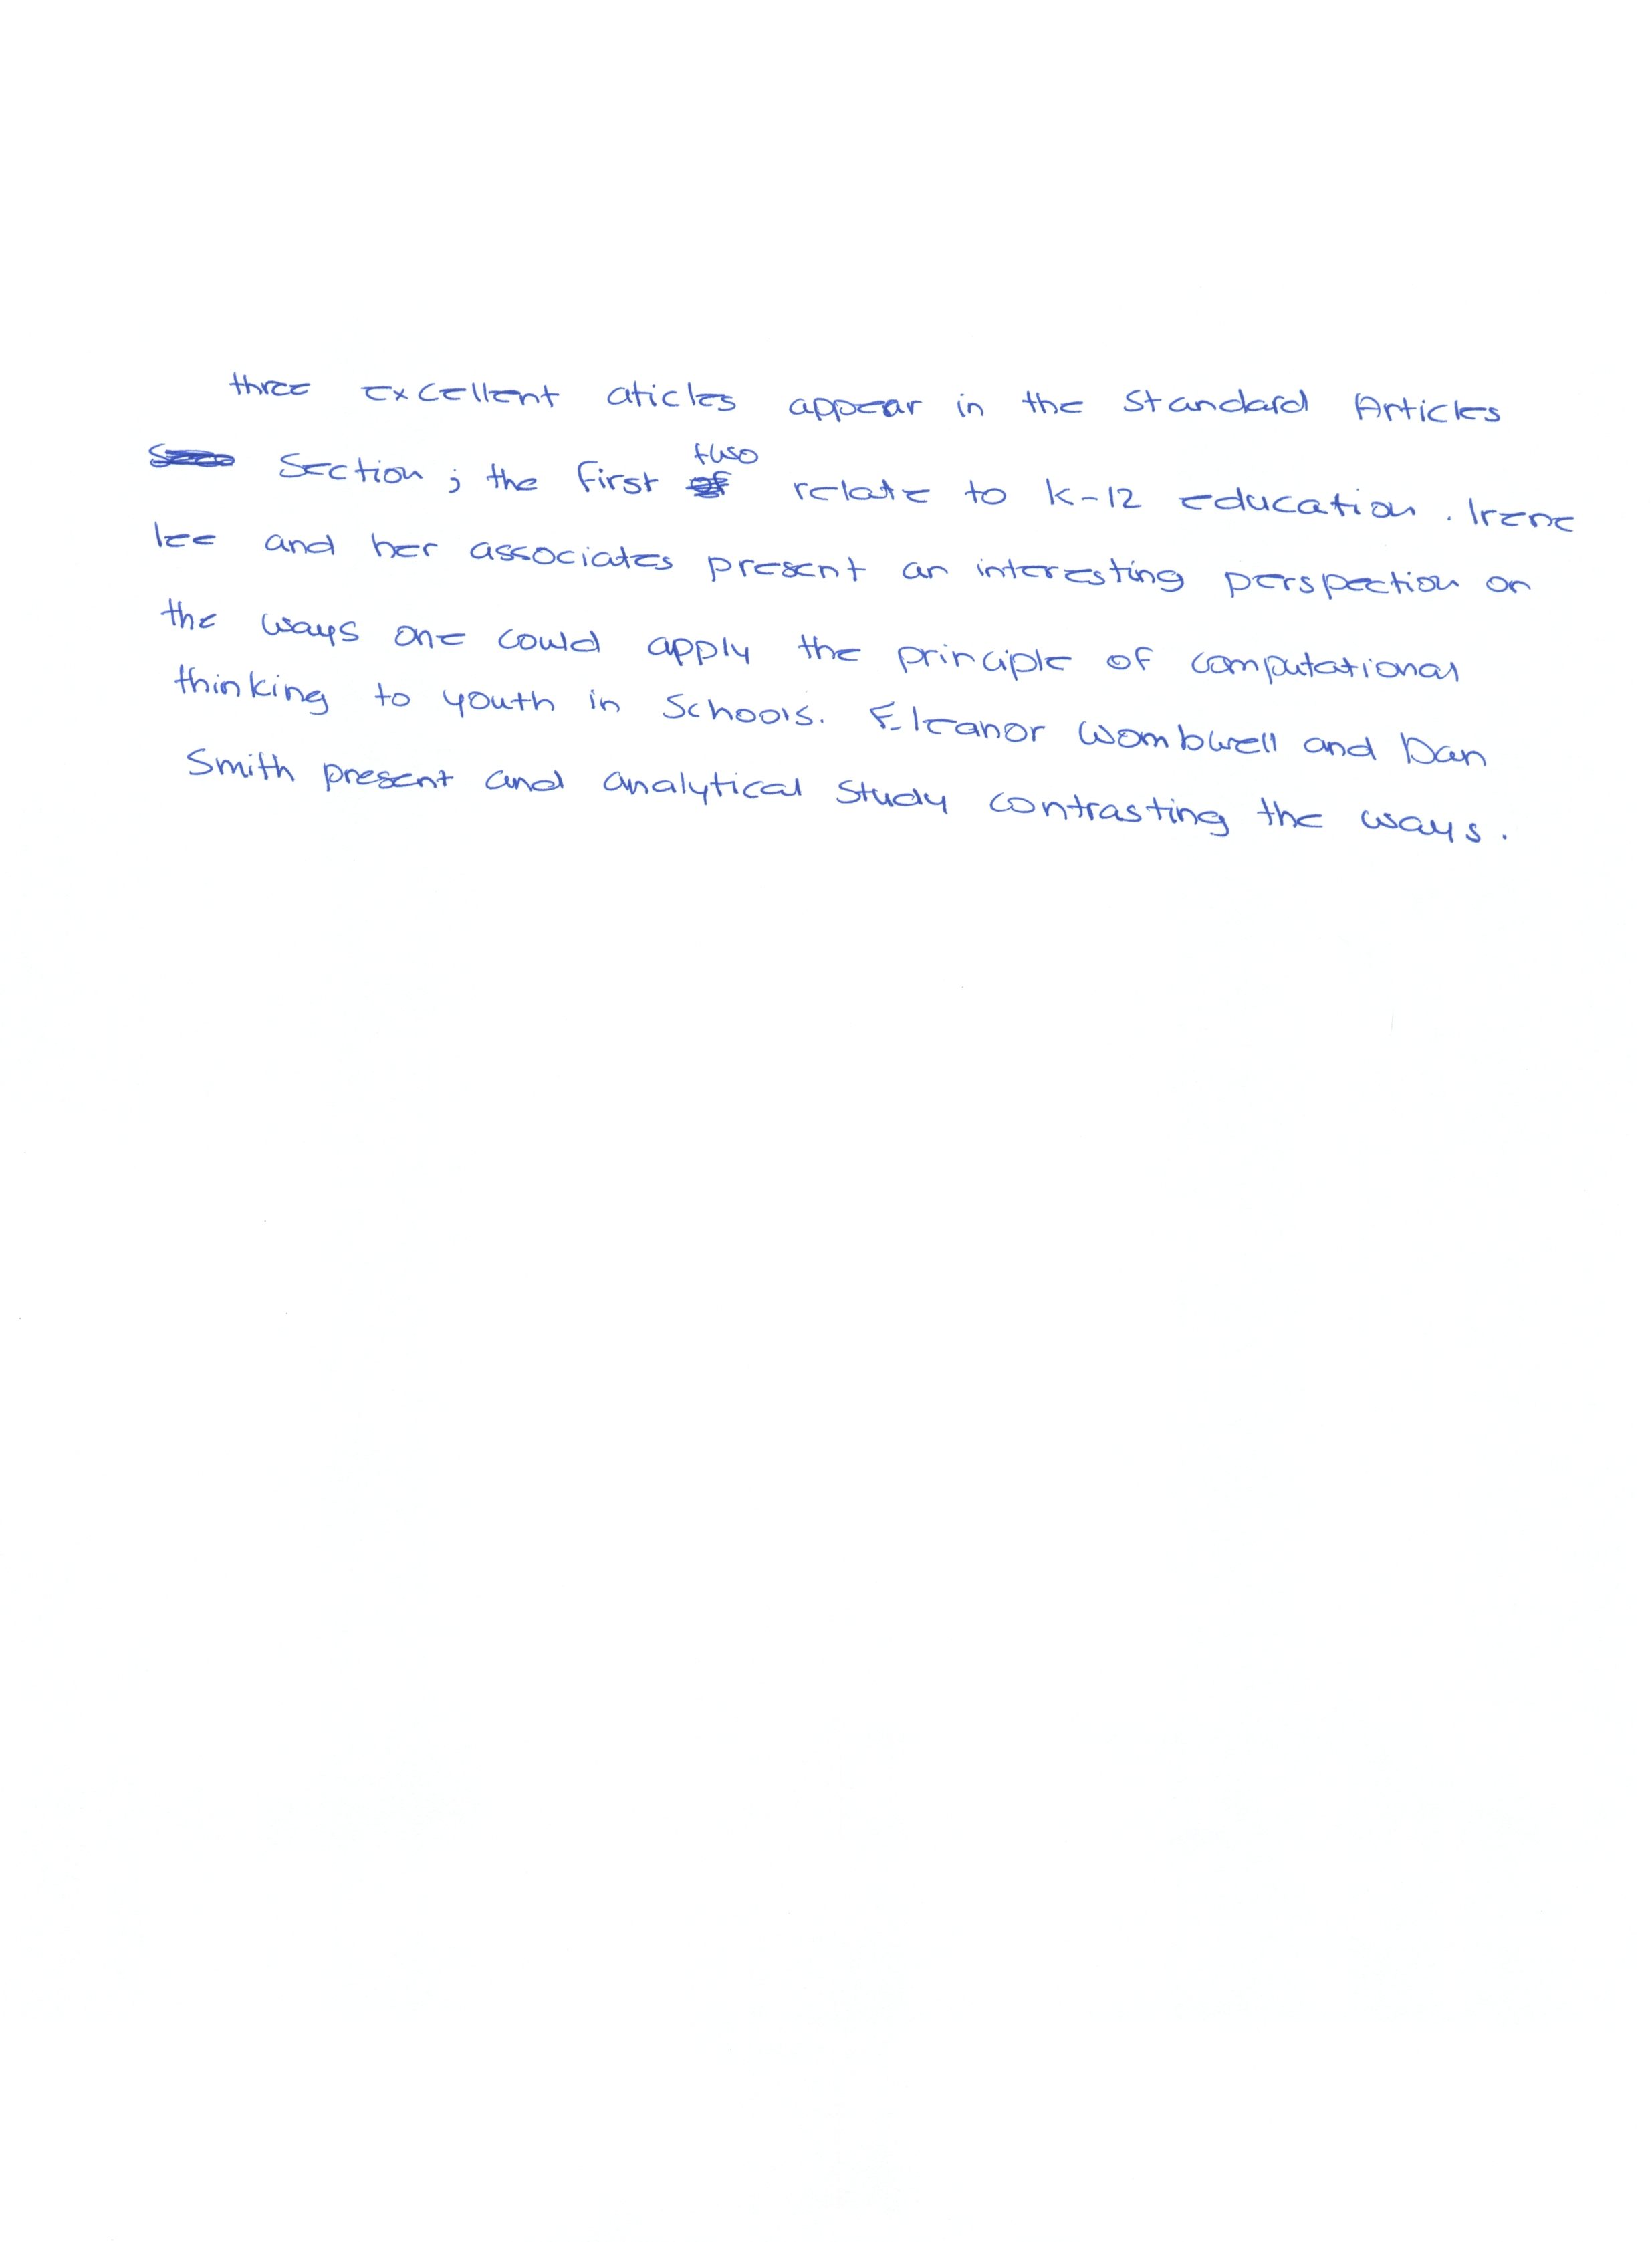 three excellent aticles appear in the Standard Articles
Section; the first two relate to K-12 education. Irene
lee and her associates present an interesting perspection on
the ways one could apply the principle of computational
thinking to youth in Schools. Eleanor Wombwell and Dan
Smith present and analytical Study contrasting the ways.